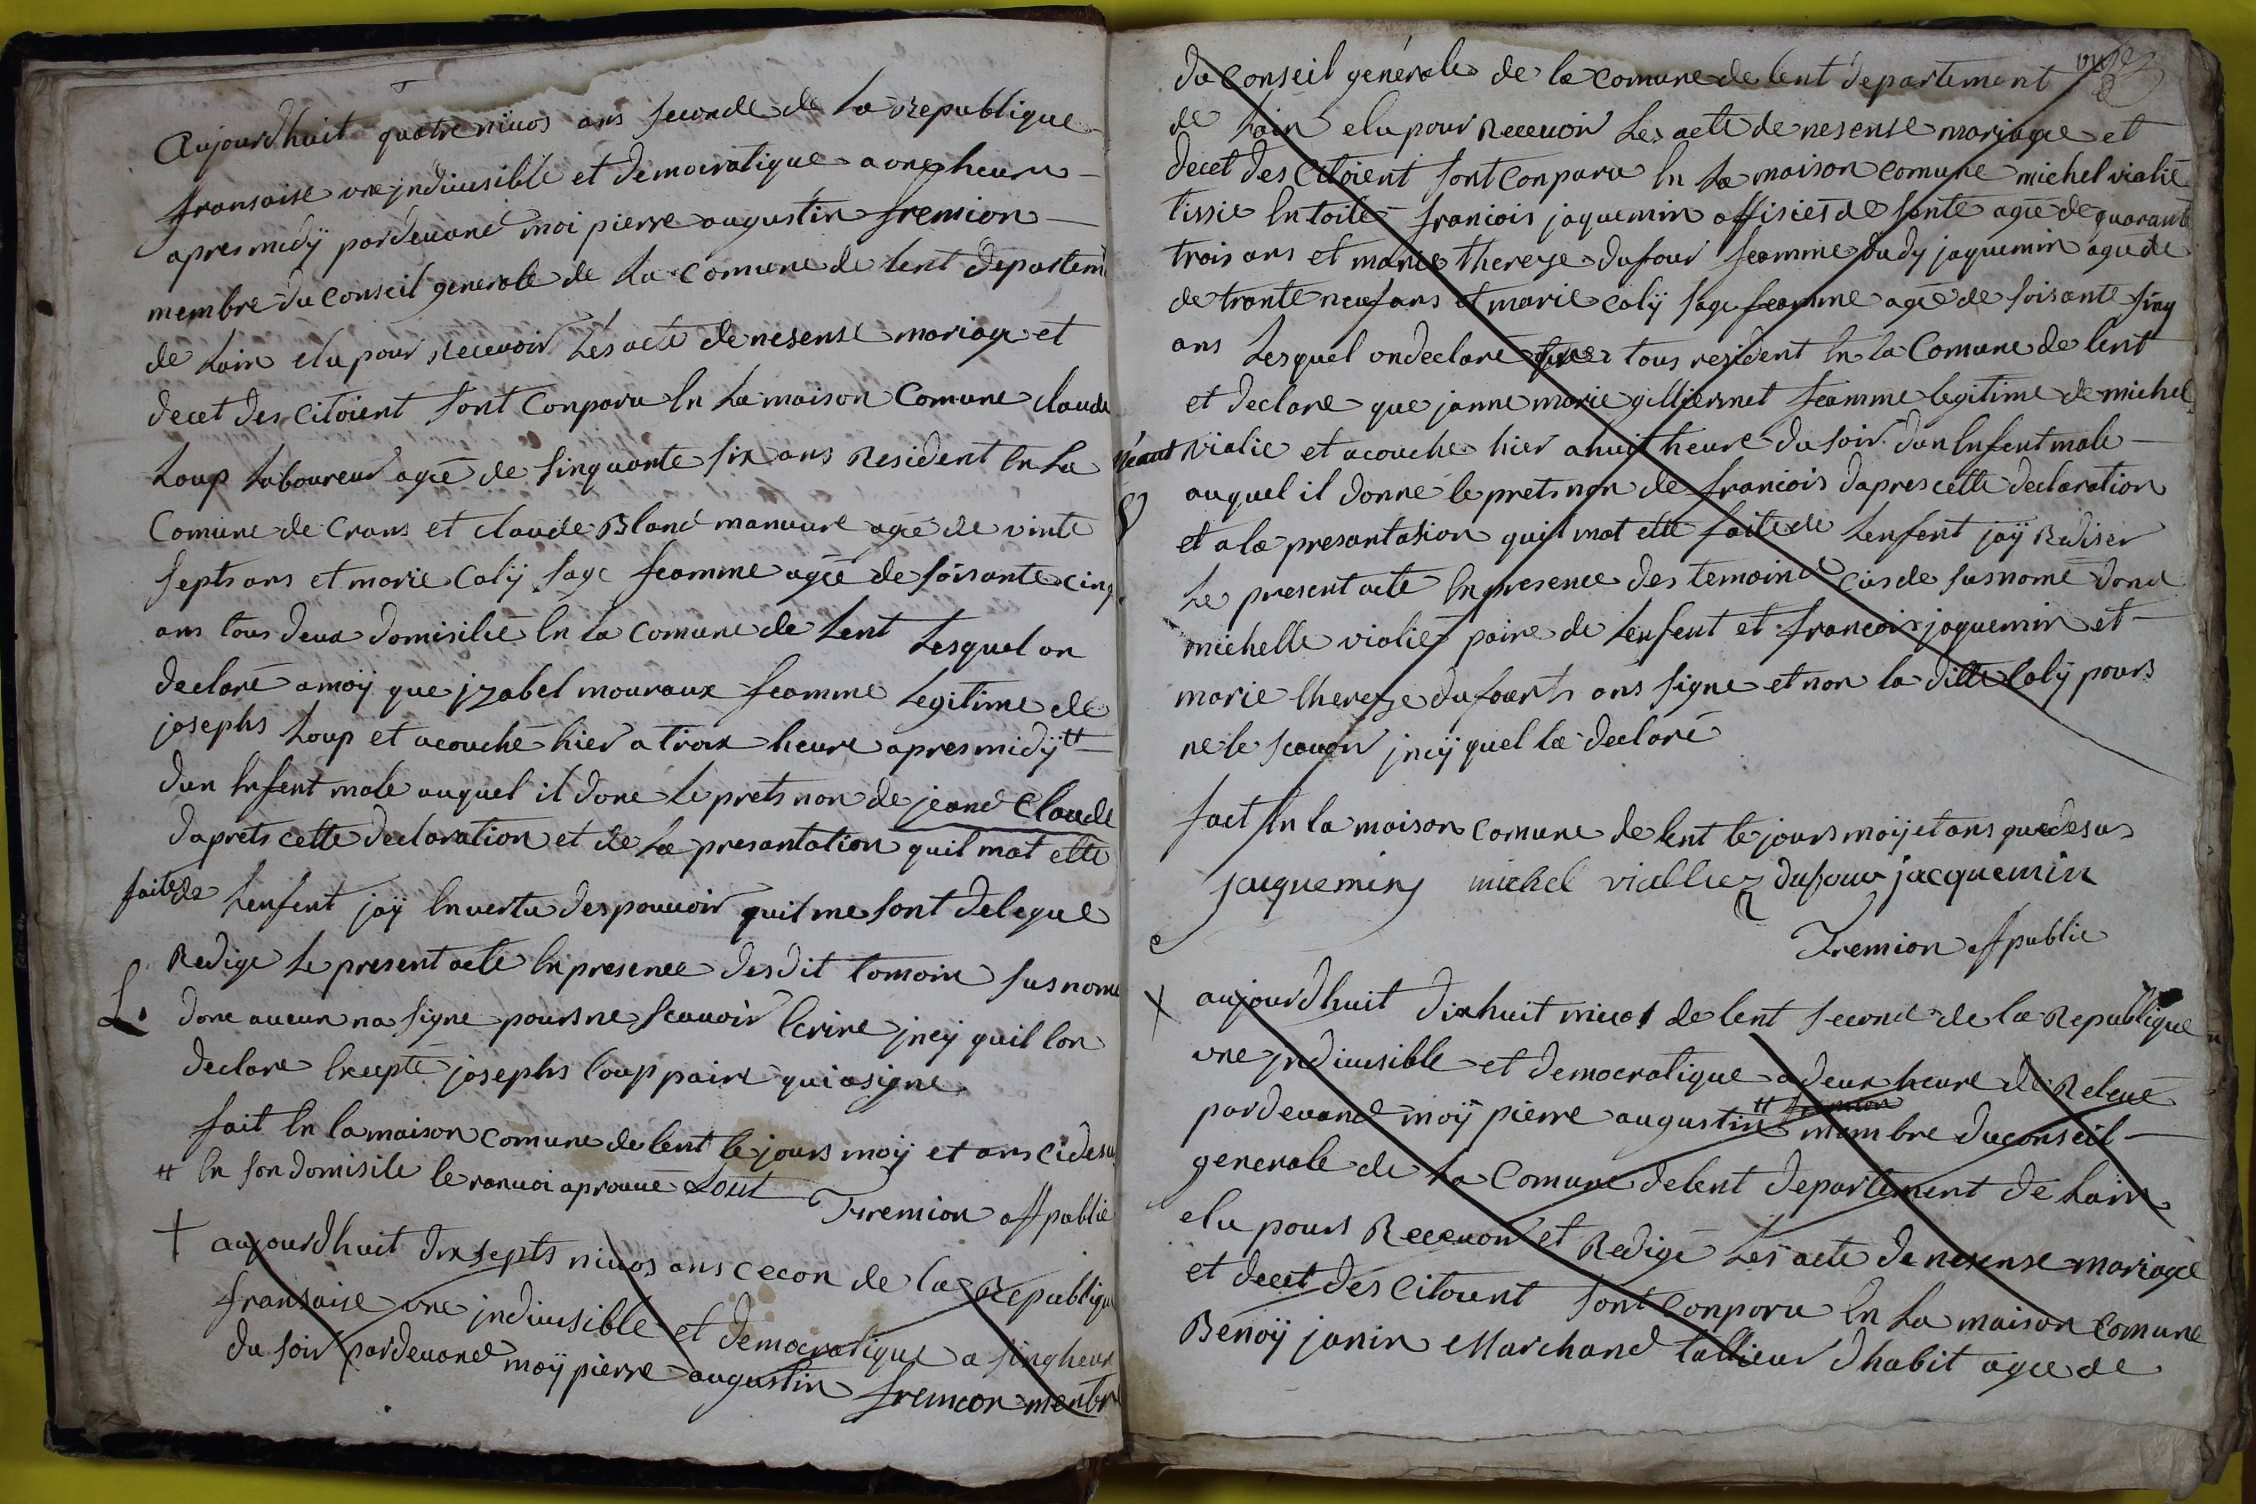 Aujourdhuit quatre nivos ans seconde de La Republique
fransaise une jndivisible et democratique a onze heure
apres midÿ pardevand moi pierre augustin fremion
membre du conseil generale de La Comune de Lent departem
de Lain elu pour Recevoir Les acte de nesense mariage et
decet des citoient sont Conparu En La maison Comune claude
Loup Laboureur agée de sinquante six ans Resident En La
Comune de Crans et claude Bland manuvre agée de vinte
septs ans et marie Calÿ sage feamme agée de soisante cinq
ans tous deux domisilié En la comune de Lent Lesquel on
declaré a moÿ que jzabel mouraux feamme Legitime de
josephs Loup et acouché hier a troix heure apres midÿ #
dun Enfent male auquel il done le prets non de jeand Claude
daprets cette declaration et de La presantation quil mat ette
faite de Lenfent jaÿ En vertu des pouvoir quil me sont delegué
Redige Le present acte En presence des dit tomoin susnomé
L.
donc aucun na signe pours ne scavoir Ecrire jncy quil lon
declare Excepté josephs loup paire qui a signe
fait En la maison comune de lent le jours moÿ et ans cidesu
# En son domisile le ranvoi aprouvé Lout
Fremion off public
+ aujourdhuit dix septs nivos ans cecon de la Republique
fransaise une jndivisible et democratique a sinq heure
du soir pardevand moÿ pierre augustin fremion menbr
du Conseil generale de la comune de lent departement
de Lain elu pour Recevoir Les acte de nesense mariage et
decet des Citoient sont Conparu En La maison comune michel vialié
tissie En toile francois jaquemin offisiés de sante agée de quarante
trois ans et marie thereze dufour feamme dudy jaquemin agée de
de trante neuf ans et marie calÿ sage feamme agée de soisante sinq
ans Lesquel on declaré tous resident En la Comune de lent
et declare que janne marie gilliermet feamme legitime de michel
Néant vialie et acouche hier a huit heure du soir dun Enfent male
auquel il donne le prets non de francois dapres cette declaration
et a la presantasion quil mat ette faite de Lenfent jaÿ Rediser
Le present acte En presence des temoin cisde susnomé donc
michelle vialié paire de Lenfent et francois jaquemin et
marie thereze dufourts ons signe et non la ditte Calÿ pours
ne le scavoir jncÿ quel la declaré
fait En la maison comune de lent le jours moÿ et ans que desus
jacquemin michel viallier dufour jacquemin
Fremion off public
+ aujourdhuit dixhuit nivos de lent second de la Republique
une jndivisible et democratique a deux heure de Relevé
pardevand moÿ pierre augustin # fremion mambre du conseil
generale de La Comune de lent departement de Lain
elu pours Recevoir et Redigé Les acte de nesense mariage
et decet des Citoient sont Conparu En La maison Comune
Benoÿ janin Marchand tallieur dhabit agée de